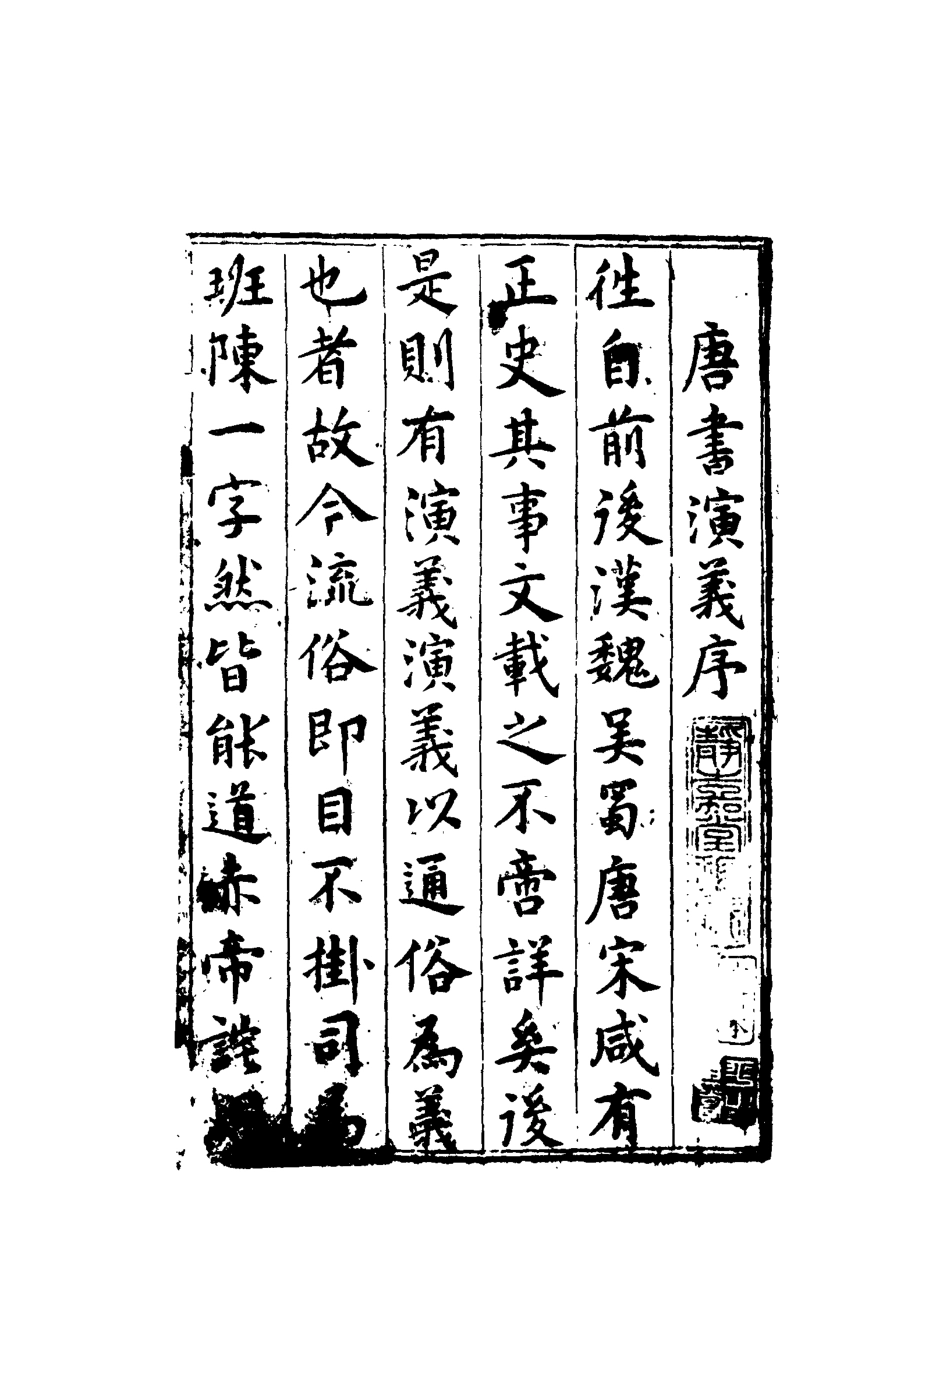 唐書演義序
徃自前後漢魏吴蜀唐宋咸有
正史其事文載之不啻詳矣後
是則有演義演義以通俗為義
也者故今流俗即目不掛司馬
班陳一字然皆能道赤帝詫
靜嘉堂